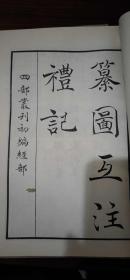 纂圖互注
禮記
四部叢刊初編經部